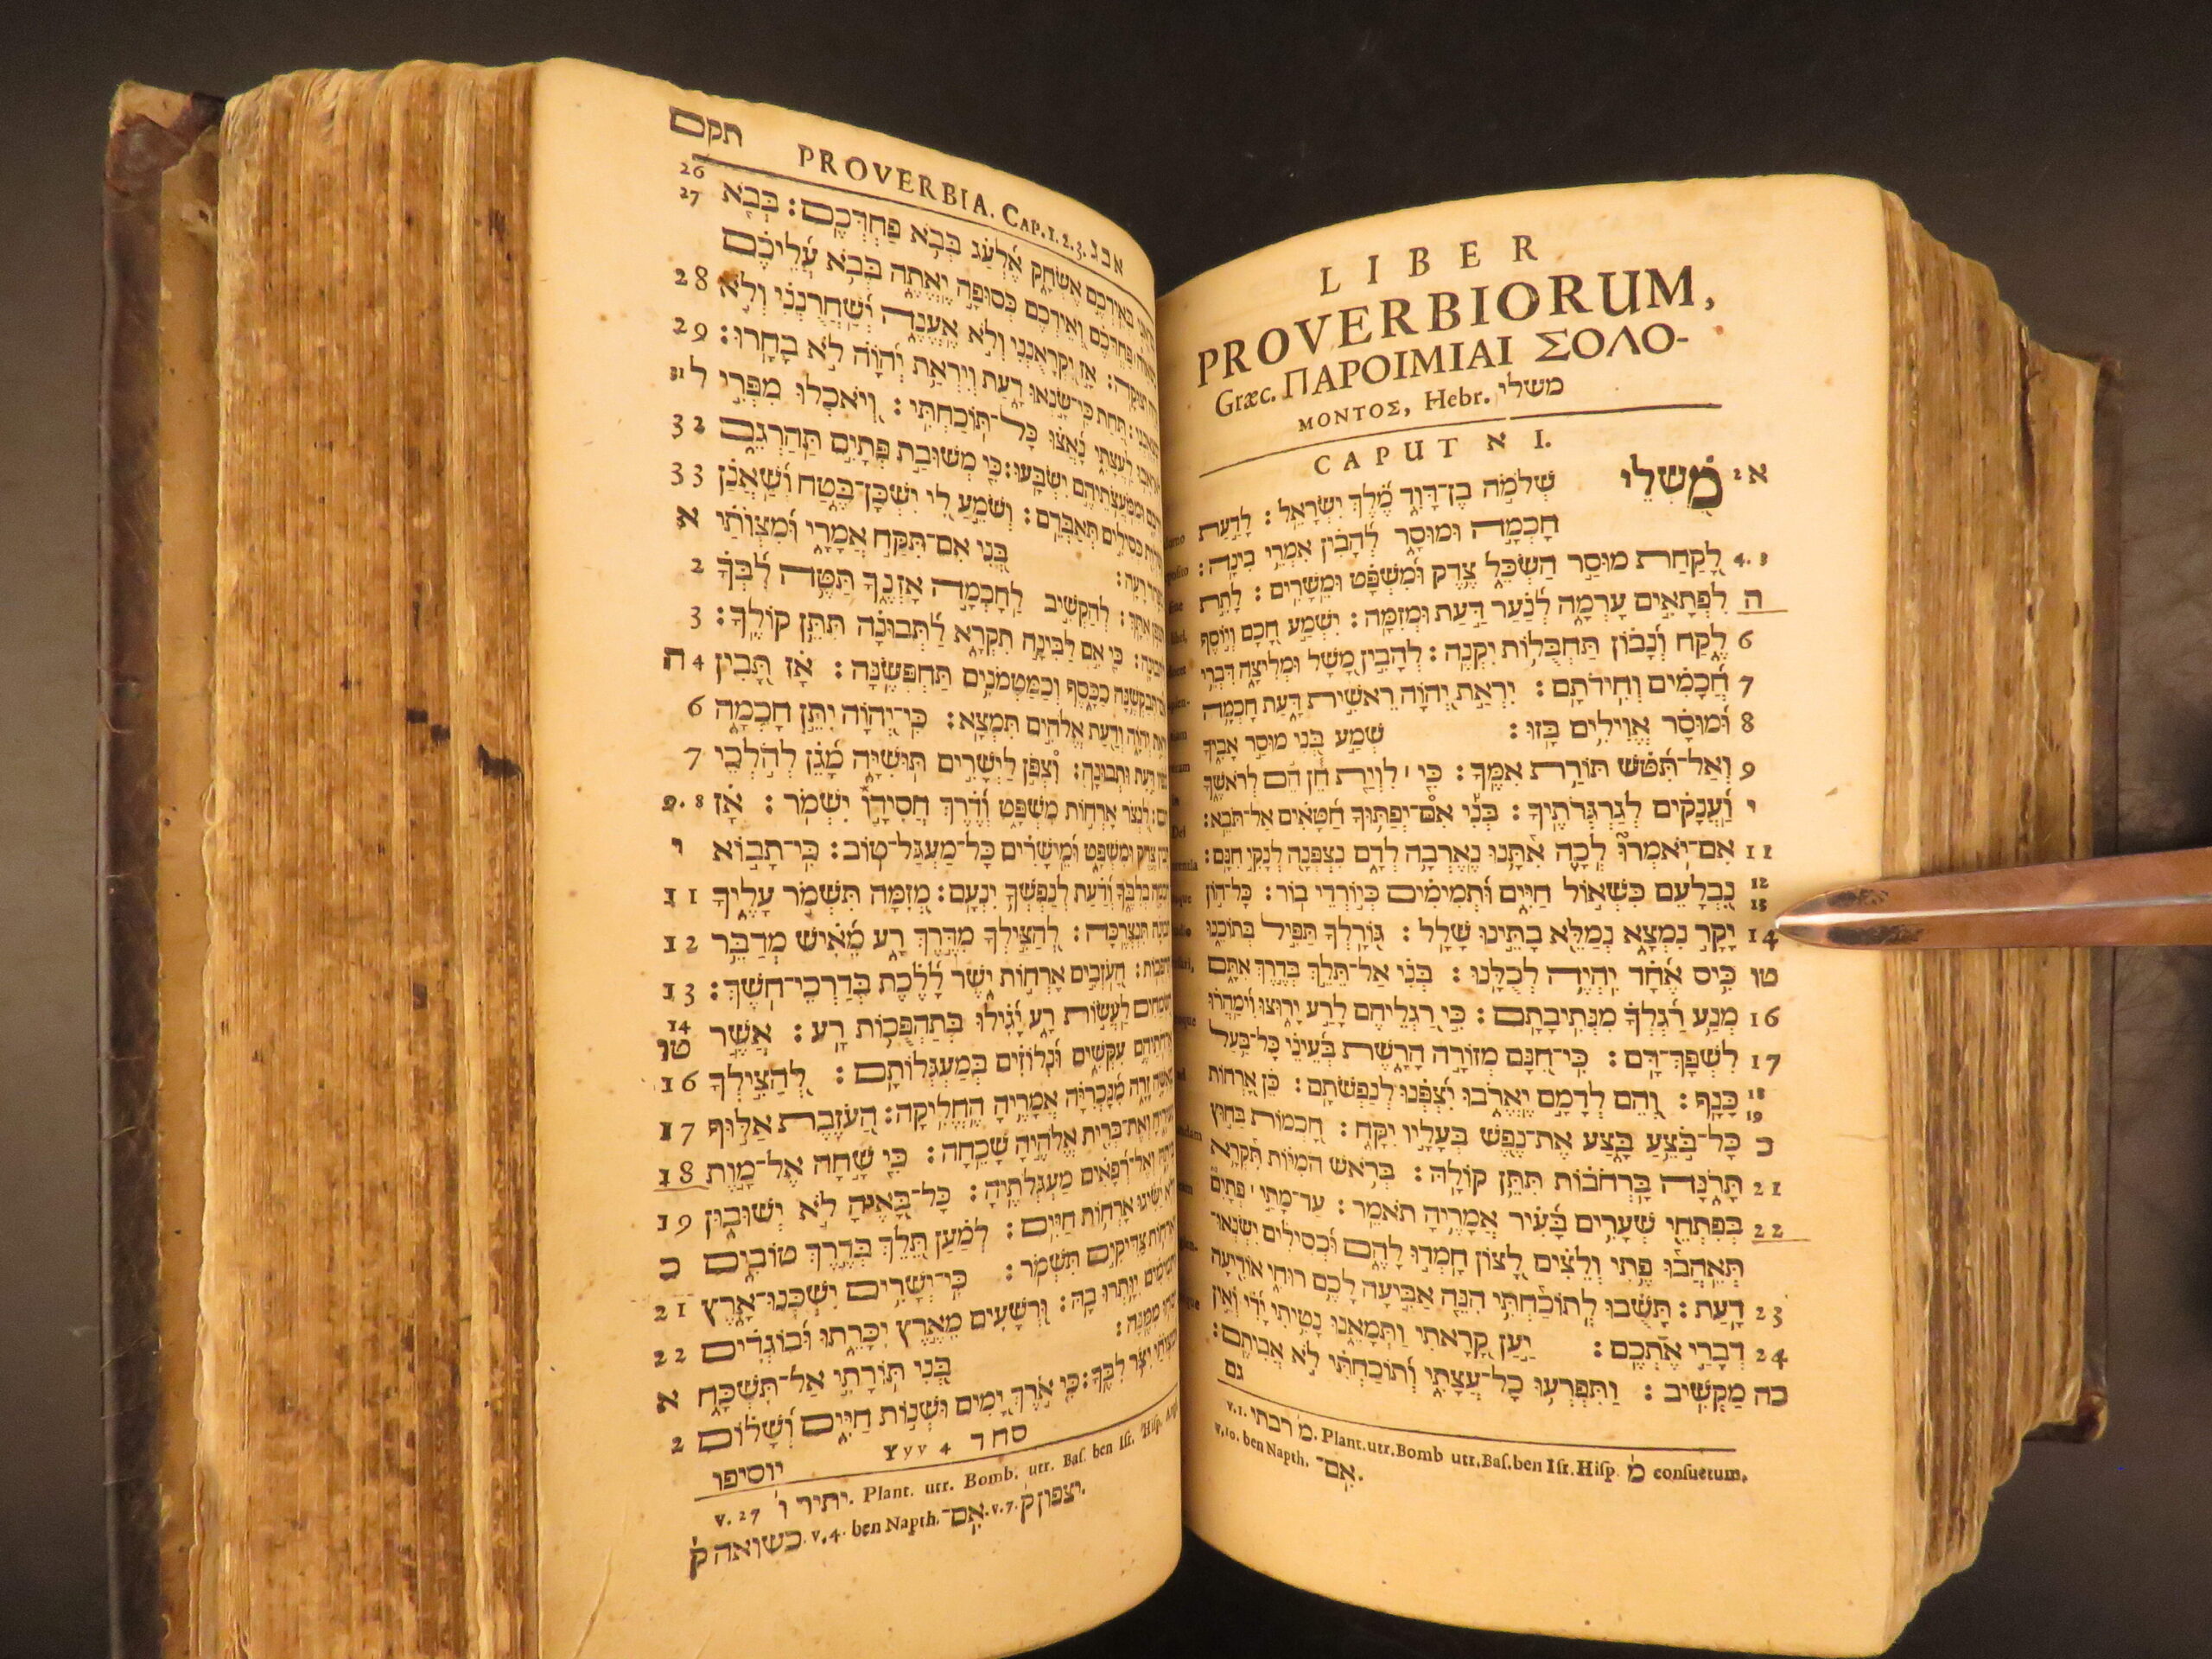 LIBER
PROVERBIORUM,
Græc. ΠΑΡΟΙΜΙΑΙ ΣΟΛΟ-
ΜΟΝΤΟΣ, Hebr. משלי
CAPUT א I.
א 2 מִשְׁלֵי שְׁלֹמֹה בֶן־דָּוִד מֶלֶךְ יִשְׂרָאֵל : לָדַעַת
חָכְמָה וּמוּסָר לְהָבִין אִמְרֵי בִינָה :
4. 3 לָקַחַת מוּסַר הַשְׂכֵּל צֶדֶק וּמִשְׁפָּט וּמֵשָׁרִים : לָתֵת
ה לִפְתָאיִם עָרְמָה לְנַעַר דַּעַת וּמְזִמָּה : יִשְׁמַע חָכָם וְיוֹסֶף
6 לֶקַח וְנָבוֹן תַּחְבֻּלוֹת יִקְנֶה : לְהָבִין מָשָׁל וּמְלִיצָה דִּבְרֵי
7 חֲכָמִים וְחִידֹתָם : יִרְאַת יְהוָֹה רֵאשִׁית דָּעַת חָכְמָה
8 וּמוּסָר אֱוִילִים בָּזוּ : שְׁמַע בְּנִי מוּסַר אָבִיךָ
9 וְאַל־תִּטֹּשׁ תּוֹרַת אִמֶּךָ : כִּי לִוְיַת חֵן הֵם לְרֹאשֶׁךָ
י וַעֲנָקִים לְגַרְגְּרֹתֶיךָ : בְּנִי אִם־יְפַתּוּךָ חַטָּאִים אַל־תֹּבֵא :
11 אִם־יֹאמְרוּ לְכָה אִתָּנוּ נֶאֶרְבָה לְדָם נִצְפְּנָה לְנָקִי חִנָּם :
12 13 נִבְלָעֵם כִּשְׁאוֹל חַיִּים וּתְמִימִים כְּיוֹרְדֵי בוֹר : כָּל־הוֹן
14 יָקָר נִמְצָא נְמַלֵּא בָתֵּינוּ שָׁלָל : גּוֹרָלְךָ תַּפִּיל בְּתוֹכֵנוּ
טו כִּיס אֶחָד יִהְיֶה לְכֻלָּנוּ : בְּנִי אַל־תֵּלֵךְ בְּדֶרֶךְ אִתָּם
16 מְנַע רַגְלְךָ מִנְּתִיבָתָם : כִּי רַגְלֵיהֶם לָרַע יָרוּצוּ וִימַהֲרוּ
17 לִשְׁפָּךְ־דָּם : כִּי־חִנָּם מְזוֹרָה הָרָשֶׁת בְּעֵינֵי כָּל־בַּעַל
18 19 כָּנָף : וְהֵם לְדָמָם יֶאֱרֹבוּ יִצְפְּנוּ לְנַפְשֹׁתָם : כֵּן אָרְחוֹת
כ כָּל־בֹּצֵעַ בָּצַע אֶת־נֶפֶשׁ בְּעָלָיו יִקָּח : חָכְמוֹת בַּחוּץ
21 תָּרֹנָּה בָּרְחֹבוֹת תִּתֵּן קוֹלָהּ : בְּרֹאשׁ הֹמִיּוֹת תִּקְרָא
22 בְּפִתְחֵי שְׁעָרִים בָּעִיר אֲמָרֶיהָ תֹאמֵר : עַד־מָתַי פְּתָיִם
תְּאֵהֲבוּ פֶתִי וְלֵצִים לָצוֹן חָמְדוּ לָהֶם וּכְסִילִים יִשְׂנְאוּ־
23 דָעַת : תָּשׁוּבוּ לְתוֹכַחְתִּי הִנֵּה אַבִּיעָה לָכֶם רוּחִי אוֹדִיעָה
24 דְבָרַי אֶתְכֶם : יַעַן קָרָאתִי וַתְּמָאֵנוּ נָטִיתִי יָדִי וְאֵין
כה מַקְשִׁיב : וַתִּפְרְעוּ כָל־עֲצָתִי וְתוֹכַחְתִּי לֹא אֲבִיתֶם :
גם
v. 1. מ׳ רבתי. Plant. utr. Bomb utr. Bas. ben Isr. Hisp. מ׳ consuetum.
v. 10. ben Napth. אִם־.
תקם PROVERBIA. CAP. 1. 2. 3. אבג
26 27 בְּאֵידְכֶם אֶשְׂחָק אֶלְעַג בְּבֹא פַחְדְּכֶם : בְּבֹא
פַּחְדְּכֶם וְאֵידְכֶם כְּסוּפָה יֶאֱתֶה בְּבֹא עֲלֵיכֶם
28 וְצוּקָה : אָז יִקְרָאֻנְנִי וְלֹא אֶעֱנֶה יְשַׁחֲרֻנְנִי וְלֹא
29 תַּחַת כִּי־שָׂנְאוּ דָעַת וְיִרְאַת יְהוָֹה לֹא בָחָרוּ :
ל 31 לַעֲצָתִי נָאֲצוּ כָּל־תּוֹכַחְתִּי : וְיֹאכְלוּ מִפְּרִי
32 וּמִמֹּעֲצֹתֵיהֶם יִשְׂבָּעוּ : כִּי מְשׁוּבַת פְּתָיִם תַּהַרְגֵם
33 כְּסִילִים תְּאַבְּדֵם : וְשֹׁמֵעַ לִי יִשְׁכָּן־בֶּטַח וְשַׁאֲנַן
א רָעָה : בְּנִי אִם־תִּקַּח אֲמָרָי וּמִצְוֹתַי
2 אִתָּךְ : לְהַקְשִׁיב לַחָכְמָה אָזְנֶךָ תַּטֶּה לִבְּךָ
3 כִּי אִם לַבִּינָה תִקְרָא לַתְּבוּנָה תִּתֵּן קוֹלֶךָ :
4 ה תְּבַקְשֶׁנָּה כַכָּסֶף וְכַמַּטְמֹנִים תַּחְפְּשֶׂנָּה : אָז תָּבִין
6 יְהוָֹה וְדַעַת אֱלֹהִים תִּמְצָא : כִּי־יְהוָֹה יִתֵּן חָכְמָה
7 דַּעַת וּתְבוּנָה : וְצָפַן לַיְשָׁרִים תּוּשִׁיָּה מָגֵן לְהֹלְכֵי
9. 8 לִנְצֹר אָרְחוֹת מִשְׁפָּט וְדֶרֶךְ חֲסִידָו יִשְׁמֹר : אָז
י צֶדֶק וּמִשְׁפָּט וּמֵישָׁרִים כָּל־מַעְגַּל־טוֹב : כִּי־תָבוֹא
11 בְלִבֶּךָ וְדַעַת לְנַפְשְׁךָ יִנְעָם : מְזִמָּה תִּשְׁמֹר עָלֶיךָ
12 תִּנְצְרֶכָּה : לְהַצִּילְךָ מִדֶּרֶךְ רָע מֵאִישׁ מְדַבֵּר
13 הַעֹזְבִים אָרְחוֹת יֹשֶׁר לָלֶכֶת בְּדַרְכֵי־חֹשֶׁךְ :
14 טו לַעֲשׂוֹת רָע יָגִילוּ בְּתַהְפֻּכוֹת רָע : אֲשֶׁר
16 עִקְּשִׁים וּנְלוֹזִים בְּמַעְגְּלוֹתָם : לְהַצִּילְךָ
17 זָרָה מִנָּכְרִיָּה אֲמָרֶיהָ הֶחֱלִיקָה : הַעֹזֶבֶת אַלּוּף
18 וְאֶת־בְּרִית אֱלֹהֶיהָ שָׁכֵחָה : כִּי שָׁחָה אֶל־מָוֶת
19 וְאֶל־רְפָאִים מַעְגְּלֹתֶיהָ : כָּל־בָּאֶיהָ לֹא יְשׁוּבוּן
כ יַשִּׂיגוּ אָרְחוֹת חַיִּים : לְמַעַן תֵּלֵךְ בְּדֶרֶךְ טוֹבִים
21 צַדִּיקִים תִּשְׁמֹר : כִּי־יְשָׁרִים יִשְׁכְּנוּ־אָרֶץ
22 יִוָּתְרוּ בָהּ : וּרְשָׁעִים מֵאֶרֶץ יִכָּרֵתוּ וּבוֹגְדִים
א מִמֶּנָּה : בְּנִי תּוֹרָתִי אַל־תִּשְׁכָּח
2 יִצֹּר לִבֶּךָ : כִּי אֹרֶךְ יָמִים וּשְׁנוֹת חַיִּים וְשָׁלוֹם
יוסיפו Yyy 4 סחר
v. 27 יתיר ו׳. Plant. utr. Bomb. utr. Bas. ben Isr. Hisp.
כשואה ק׳. v. 4. ben Napth. אִם־. v. 7. יצפון ק׳.